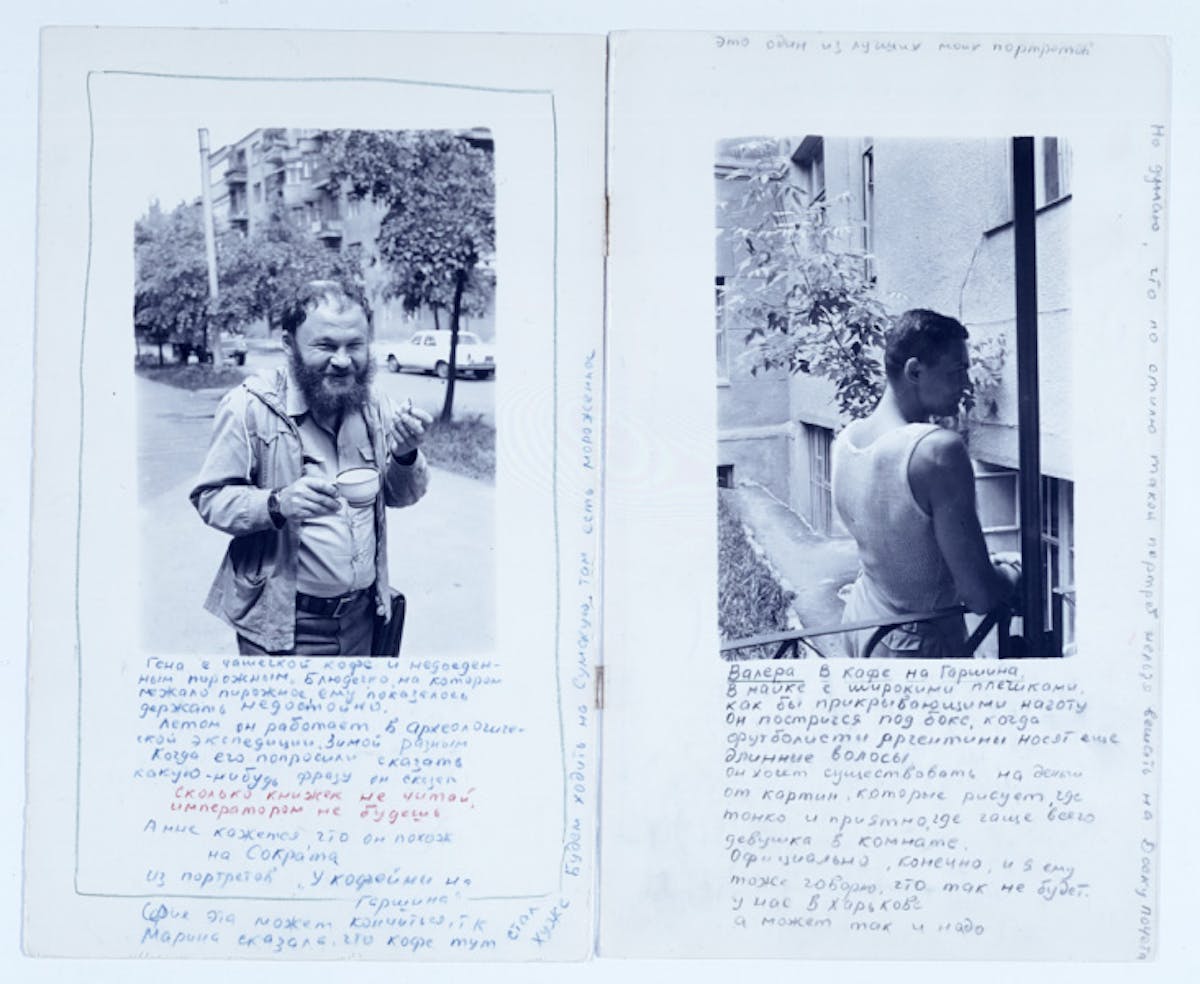 Гена с чашечкой кофе и недоеден-
ным пирожным. Блюдечко, на котором
лежало пирожное, ему показалось
держать недостойно.
Летом он работает в археологиче-
ской экспедиции, зимой разным
Когда его попросили сказать
какую-нибудь фразу он сказал
Сколько книжек не читай,
императором не будешь.
А мне кажется что он похож
на Сократа
из портретов "У кофейни на
Гаршина"
Серия эта может кончиться, т к
Марина сказала, что кофе тут стал
хуже
Будем ходить на Сумскую, там есть мороженное
Это один из лучших моих портретов
Валера В кафе на Гаршина,
В майке с широкими плечиками,
как бы прикрывающими наготу
Он постригся под бокс, когда
футболисты Аргентины носят еще
длинные волосы
Он хочет существовать на деньги
от картин, которые рисует, где
тонко и приятно, где чаще всего
девушка в комнате.
Официально, конечно, и я ему
тоже говорю, что так не будет.
у нас в Харькове
а может так и надо
Но думаю, что по стилю такой портрет нельзя вешать на Доску Почета